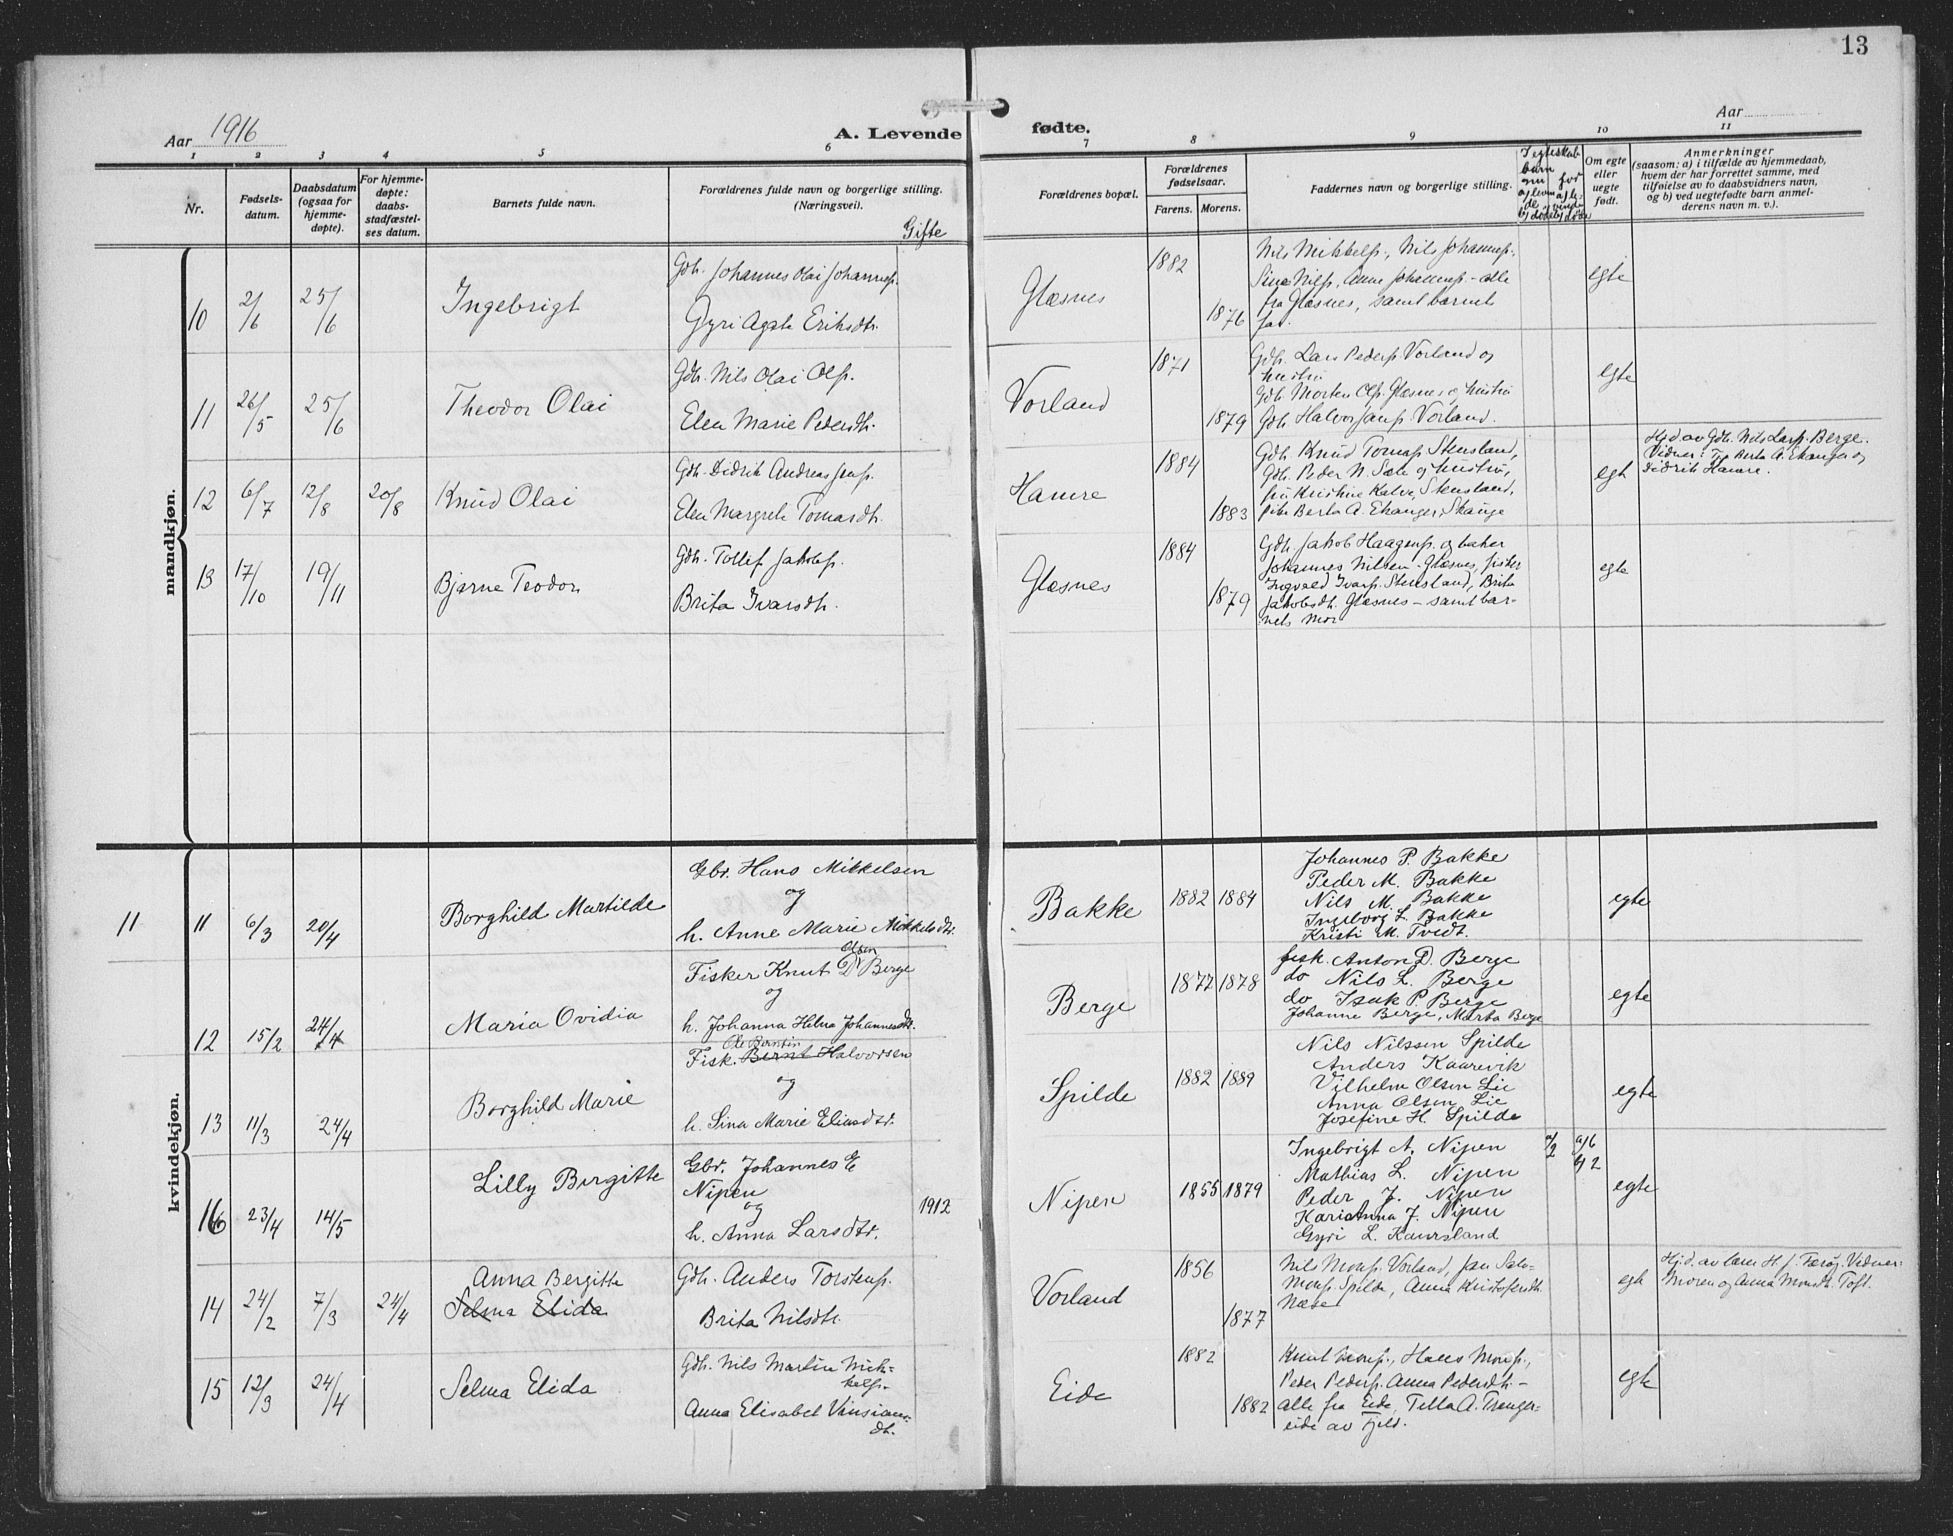 13
Aar 1916
A. Levende fødte.
Aar
1 2 3 4 5 6 7 8 9 10 11
Nr.
Fødsels-
datum.
Daabsdatum
(ogsaa for
hjemme-
døpte).
For hjemme-
døpte:
daabs-
stadfæstel-
ses datum.
Barnets fulde navn.
Forældrenes fulde navn og borgerlige stilling.
(Næringsvei).
Gifte
Forældrenes bopæl.
Forældrenes
fødselsaar.
Farens. Morens.
Faddernes navn og borgerlige stilling.
I egteskab
barn
Om egte
eller
uegte
født.
Anmerkninger
(saasom: a) i tilfælde av hjemmedaab,
hvem der har forrettet samme, med
tilføielse av to daabsvidners navn,
og b) ved uegtefødte barn anmel-
derens navn m. v.).
mandkjøn.
10 2/6 25/6 Ingebrigt
Gdh. Johannes Olai Johanness.
Gyri Agate Eriksdtr.
Glæsnes 1882 1876
Nils Mikkels., Nils Johanness.
Sina Nilss., Anne Johanness. - alle
fra Glæsnes, samt barnets
far.
egte
11 26/5 25/6 Theodor Olai
Gdh. Nils Olai Ols.
Elen Marie Pedersdtr.
Vorland 1871 1879
Gdh. Lars Peders. Vorland og
hustru
Gdh. Morten Ols. Glæsnes og hustru
Gdh. Halvor Jans. Vorland.
egte
12 6/7 12/8 20/8 Knud Olai
Gdh. Didrik Andreas Jens.
Elen Margrete Tomasdtr.
Hamre 1884 1883
Gdh. Knud Tomas. Stensland,
Gdh. Peder N. Sæle og hustru,
fru Kristine Kalve, Stensland,
pike Berta A. Ekanger, Skauge
egt
Hjd. av Gdh. Nils Lars. Berge.
Vidner: Berta A. Ekanger og
Didrik Hamre.
13 17/10 19/11 Bjarne Teodor
Gdh. Tollef Jakobs.
Brita Ivarsdtr.
Glæsnes 1884 1879
Gdh. Jakob Haagens. og baker
Johannes Nilsen Glæsnes, fisker
Ingvald Ivars. Stensland, Brita
Jakobsdtr. Glæsnes - samt bar-
nets mor
egte
kvindekjøn.
11 11 6/3 20/4 Borghild Martilde
Gbr. Hans Mikkelsen
og
h. Anne Marie Mikkelsdtr.
Bakke 1882 1884
Johannes P. Bakke
Peder M. Bakke
Nils M. Bakke
Ingeborg L. Bakke
Kristi M. Tvedt.
egte
12 15/2 24/4 Maria Ovidia
Olsen
Fisker Knut D. Berge
og
h. Johanna Helna Johannesdtr.
Berge 1877 1878
fisk. Anton D. Berge
do Nils L. Berge
do Isak P. Berge
Johanne Berge, Marta Berge
egte
13 11/3 24/4 Borghild Marie
Ole Berntin
Fisk. Bernt Halvorsen
og
h. Sina Marie Eliasdtr.
Spilde 1882 1889
Nils Nilssen Spilde
Anders Kaarevik
Vilhelm Olsen Lie
Anna Olsen Lie
Josefine H. Spilde
egte
16 23/4 14/5 Lilly Birgitte
Gbr. Johannes E
Nipen
og
h. Anna Larsdtr.
1912
Nipen 1855 1879
Ingebrigt A. Nipen
Mathias L. Nipen
Peder J. Nipen
Karianna J. Nipen
Gyri L. Kaursland
a/2 a/6
b/2
egte
14 24/2 7/3 24/4 Anna Bergitte
Selma Elida
Gdh. Anders Torstens.
Brita Nilsdtr.
Vorland 1856 1877
Nils Mons. Vorland, Jan Salo-
mons. Spilde, Anna Kristofersdtr.
Næse
egt
Hjd. av lærer H. J. Færøy. Vidner:
Moren og Anna Monsdtr. Toft.
15 12/3 24/4 Selma Elida
Gdh. Nils Martin Mik-
kels.
Anna Elisabet Vinsians-
dtr.
Eide 1882 1882
Knut Mons., Hans Mons.,
Peder Peders. Anna Pedersdtr. -
alle fra Eide, Tella A. Tranger-
eide av Fjeld.
egte